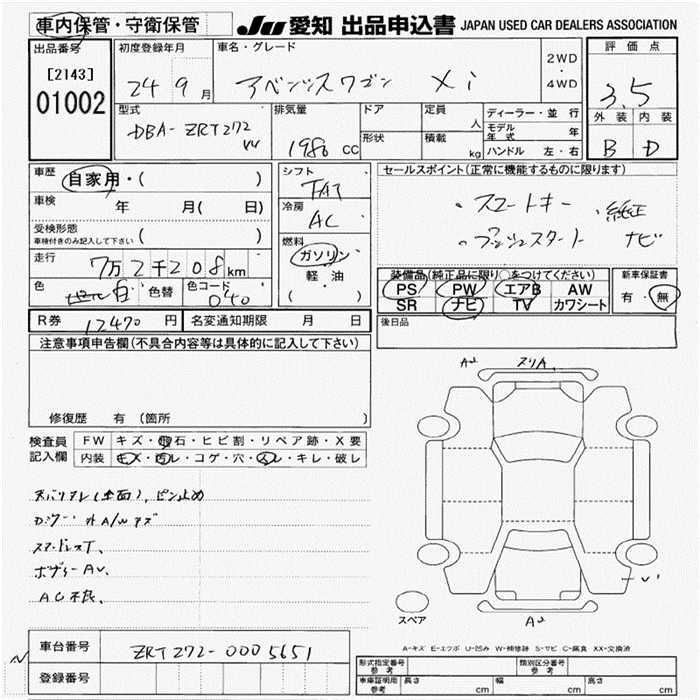 車内保管・守衛保管
JU 愛知 出品申込書 JAPAN USED CAR DEALERS ASSOCIATION
出品番号
[2143]
01002
初度登録年月
24 9 月
車名・グレード
アベンシスワゴン Xi
2WD
・
4WD
評価点
3.5
外装 内装
B D
型式
DBA-ZRT272W
排気量
1980 cc
ドア
形状
定員 人
積載 kg
ディーラー・並行
モデル年式 年
ハンドル 左・右
車歴 自家用・( )
車検 年 月( 日)
受検形態
車検付きのみ記入して下さい ( )
走行 7万2千208km
色 白 色替 色コード 040
シフト
FAT
冷房
AC
燃料
ガソリン
軽・油
( )
セールスポイント(正常に機能するものに限ります)
・スマートキー ・純正
・プッシュスタート ナビ
装備品(純正品に限り○をつけてください)
PS PW エアB AW
SR ナビ TV カワシート
新車保証書
有・無
R券 12470 円 名変通知期限 月 日
後日品
注意事項申告欄(不具合内容等は具体的に記入して下さい)
修復歴 有(箇所 )
検査員記入欄
FW キズ・飛石・ヒビ割・リペア跡・X要
内装 キズ・汚レ・コゲ・穴・スレ・キレ・破レ
天バリタレ(全面)、ピン止め
外A/Wキズ
ボディーAU、
AC不良、
A2 スリA、
A2
スペア
A-キズ E-エクボ U-凹み W-補修跡 S-サビ C-腐食 XX-交換済
車台番号 ZRT272-0005651
登録番号
形式指定番号
参考
類別区分番号
参考
車庫証明用
参考
長さ cm 幅 cm 高さ cm